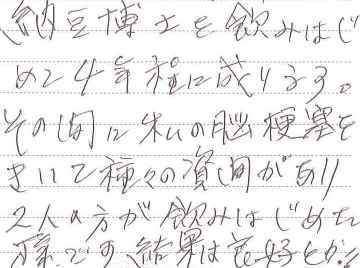 納豆博士を飲みはじ
めて4年程に成ります。
その間に私の脳梗塞を
きいて種々の質問があり
2人の方が飲みはじめた
様です、結果は良好とか